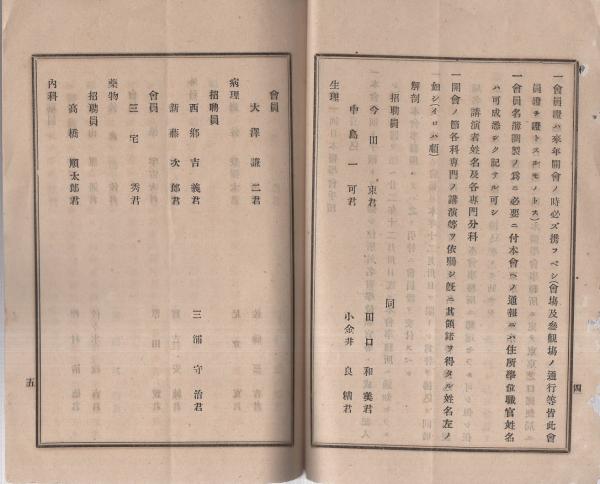 一會員證ハ來年開會ノ時必ズ携フベシ(會塲及參觀塲ノ通行等皆此會
員證ヲ證トスルモノトス)
一會員名簿調製ノ爲ニ必要ニ付本會ヘノ通報ニハ住所學位職官姓名
ハ可成悉デク記サル可シ
講演者姓名及各專門分科
一開會ノ節各科專門ノ講演等ヲ依賴シ既ニ其領諾ヲ得タル姓名左ノ
如シ(イロハ順)
解剖
招聘員
今田 束君
同
田口 和美君
中島 一可君
小金井 良精君
生理
四
會員
大澤 謙二君
病理
招聘員
西鄕 吉義君
三浦 守治君
新藤 次郎君
會員
三宅 秀君
藥物
招聘員
高橋 順太郎君
內科
五